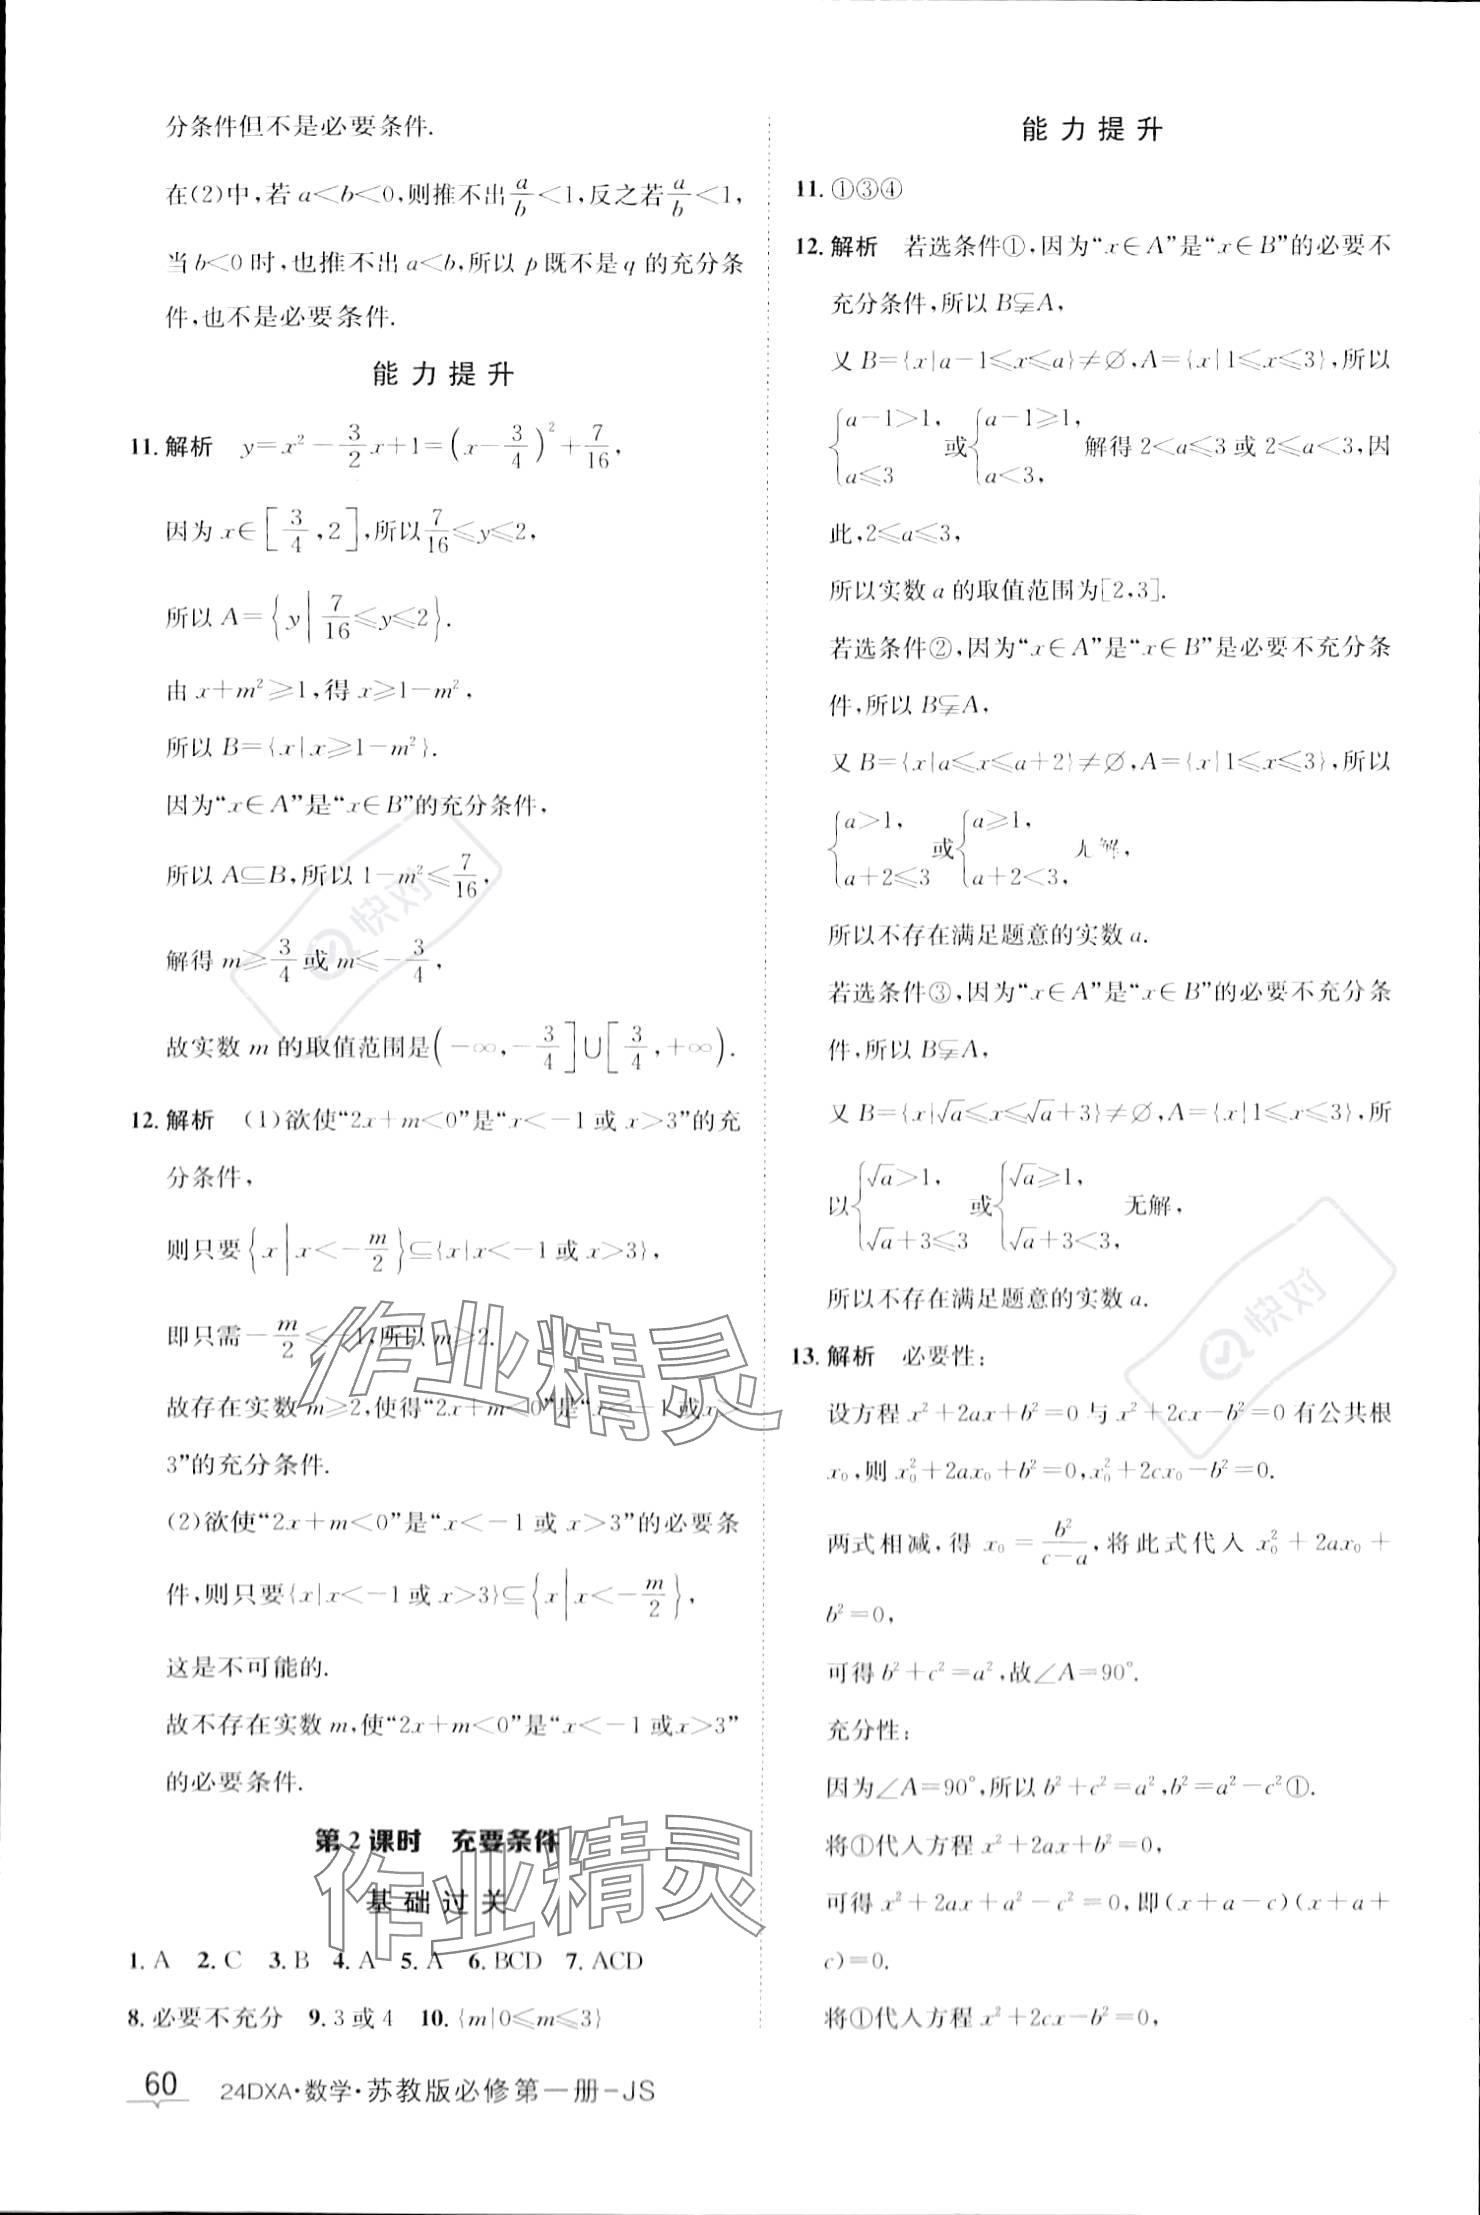 分条件但不是必要条件.
在(2)中,若 a<b<0,则推不出 a/b<1,反之若 a/b<1,
当 b<0 时,也推不出 a<b,所以 p 既不是 q 的充分条
件,也不是必要条件.
能力提升
11. 解析 y=x²-3/2x+1=(x-3/4)²+7/16,
因为 x∈[3/4,2],所以 7/16≤y≤2,
所以 A={y|7/16≤y≤2}.
由 x+m²≥1,得 x≥1-m²,
所以 B={x|x≥1-m²}.
因为“x∈A”是“x∈B”的充分条件,
所以 A⊆B,所以 1-m²≤7/16,
解得 m≥3/4 或 m≤-3/4,
故实数 m 的取值范围是(-∞,-3/4]∪[3/4,+∞).
12. 解析 (1)欲使“2x+m<0”是“x<-1 或 x>3”的充
分条件,
则只要{x|x<-m/2}⊆{x|x<-1 或 x>3},
即只需-m/2≤-1,所以 m≥2.
故存在实数 m≥2,使得“2x+m<0”是“x<-1 或 x>
3”的充分条件.
(2)欲使“2x+m<0”是“x<-1 或 x>3”的必要条
件,则只要{x|x<-1 或 x>3}⊆{x|x<-m/2},
这是不可能的.
故不存在实数 m,使“2x+m<0”是“x<-1 或 x>3”
的必要条件.
第 2 课时 充要条件
基础过关
1. A 2. C 3. B 4. A 5. A 6. BCD 7. ACD
8. 必要不充分 9. 3 或 4 10. {m|0≤m≤3}
60 24DXA·数学·苏教版必修第一册-JS
能力提升
11. ①③④
12. 解析 若选条件①,因为“x∈A”是“x∈B”的必要不
充分条件,所以 B⫋A,
又 B={x|a-1≤x≤a}≠∅,A={x|1≤x≤3},所以
{a-1>1, a≤3 或{a-1≥1, a<3, 解得 2<a≤3 或 2≤a<3,因
此,2≤a≤3,
所以实数 a 的取值范围为[2,3].
若选条件②,因为“x∈A”是“x∈B”是必要不充分条
件,所以 B⫋A,
又 B={x|a≤x≤a+2}≠∅,A={x|1≤x≤3},所以
{a>1, a+2≤3 或{a≥1, a+2<3, 无解,
所以不存在满足题意的实数 a.
若选条件③,因为“x∈A”是“x∈B”的必要不充分条
件,所以 B⫋A,
又 B={x|√a≤x≤√a+3}≠∅,A={x|1≤x≤3},所
以{√a>1, √a+3≤3 或{√a≥1, √a+3<3, 无解,
所以不存在满足题意的实数 a.
13. 解析 必要性:
设方程 x²+2ax+b²=0 与 x²+2cx-b²=0 有公共根
x₀,则 x₀²+2ax₀+b²=0,x₀²+2cx₀-b²=0.
两式相减,得 x₀=b²/(c-a),将此式代入 x₀²+2ax₀+
b²=0,
可得 b²+c²=a²,故∠A=90°.
充分性:
因为∠A=90°,所以 b²+c²=a²,b²=a²-c²①.
将①代人方程 x²+2ax+b²=0,
可得 x²+2ax+a²-c²=0,即(x+a-c)(x+a+
c)=0.
将①代人方程 x²+2cx-b²=0,
作业精灵
作业精灵
快对
快对